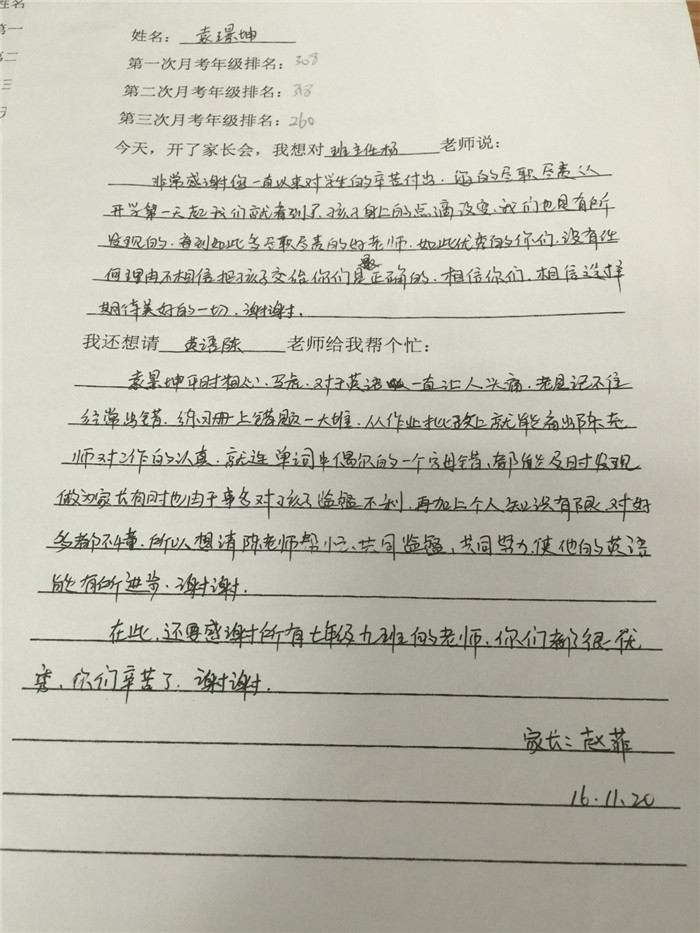 姓名
第一
第二
三
姓名：袁璟坤
第一次月考年级排名：308
第二次月考年级排名：318
第三次月考年级排名：260
今天，开了家长会，我想对班主任杨老师说：
非常感谢您一直以来对学生的辛苦付出．您的尽职尽责从
开学第一天起我们就看到了．孩子身上的点滴改变．我们也是有所
发现的．看到如此多尽职尽责的好老师．如此优秀的你们．没有任
何理由不相信把孩子交给你们是正确的．相信你们．相信这样
期待美好的一切．谢谢．
我还想请英语陈老师给我帮个忙：
袁景坤平时粗心．马虎．对于英语一直让人头痛．老是记不住
经常出错．练习册上错题一大堆．从作业批改上就能看出陈老
师对工作的认真．就连单词中偶尔的一个字母错、都能及时发现
做为家长有时也由于事多对孩子监督不利．再加上个人知识有限．对好
多都不懂．所以想请陈老师帮忙、共同监督，共同努力．使他的英语
能有所进步．谢谢．
在此．还要感谢所有七年级九班的老师．你们都很优
秀．你们辛苦了．谢谢．
家长：赵菲
16.11.20